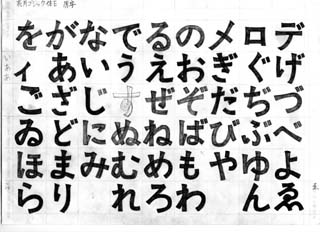 ゴシック体E 原字
をがなでるのメロデ
ィあいうえおぎぐげ
ござじすぜぞだぢづ
ゐどにぬねばびぶべ
ほまみむめもやゆよ
らりれろわんゑ